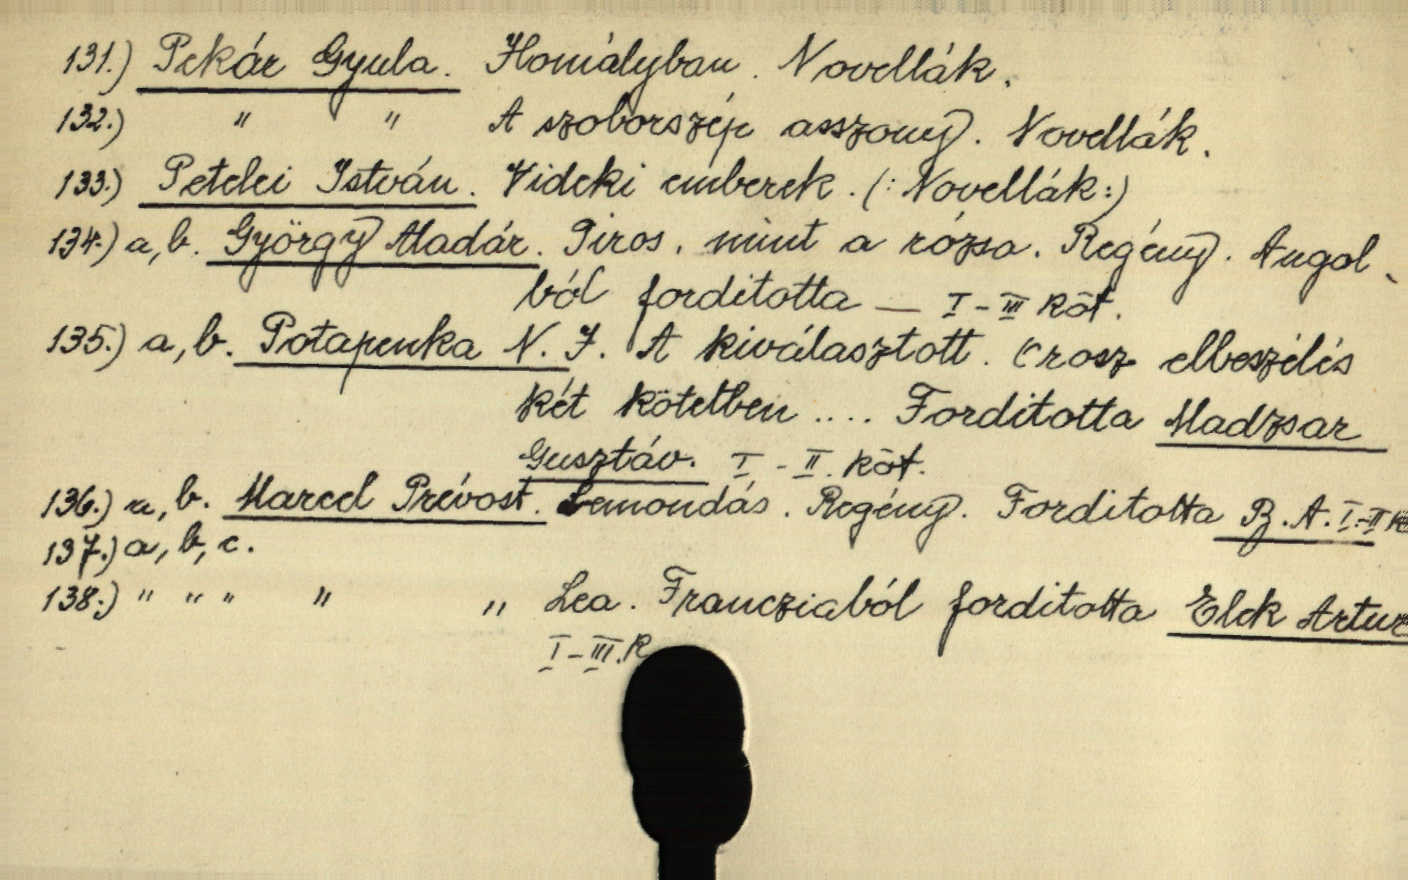 131.) Pekár Gyula. Homályban. Novellák.
132.) " " A szoborszép asszony. Novellák.
133.) Petelei István. Videki emberek. (: Novellák :)
134.) a, b. György Aladár. Piros, mint a rózsa. Regény. Angol-
ból forditotta — I-III köt.
135.) a, b. Potapenka N. J. A kiválasztott. Orosz elbeszélés
két kötetben .... Forditotta Madzsar
Gusztáv. I - II. köt.
136.) a, b. Marcel Prévost. Lemondás. Regény. Forditotta B. A. I.-II kö
137.) a, b, c.
138.) " " " " " Lea. Francziából forditotta Elek Artur
I-III. K